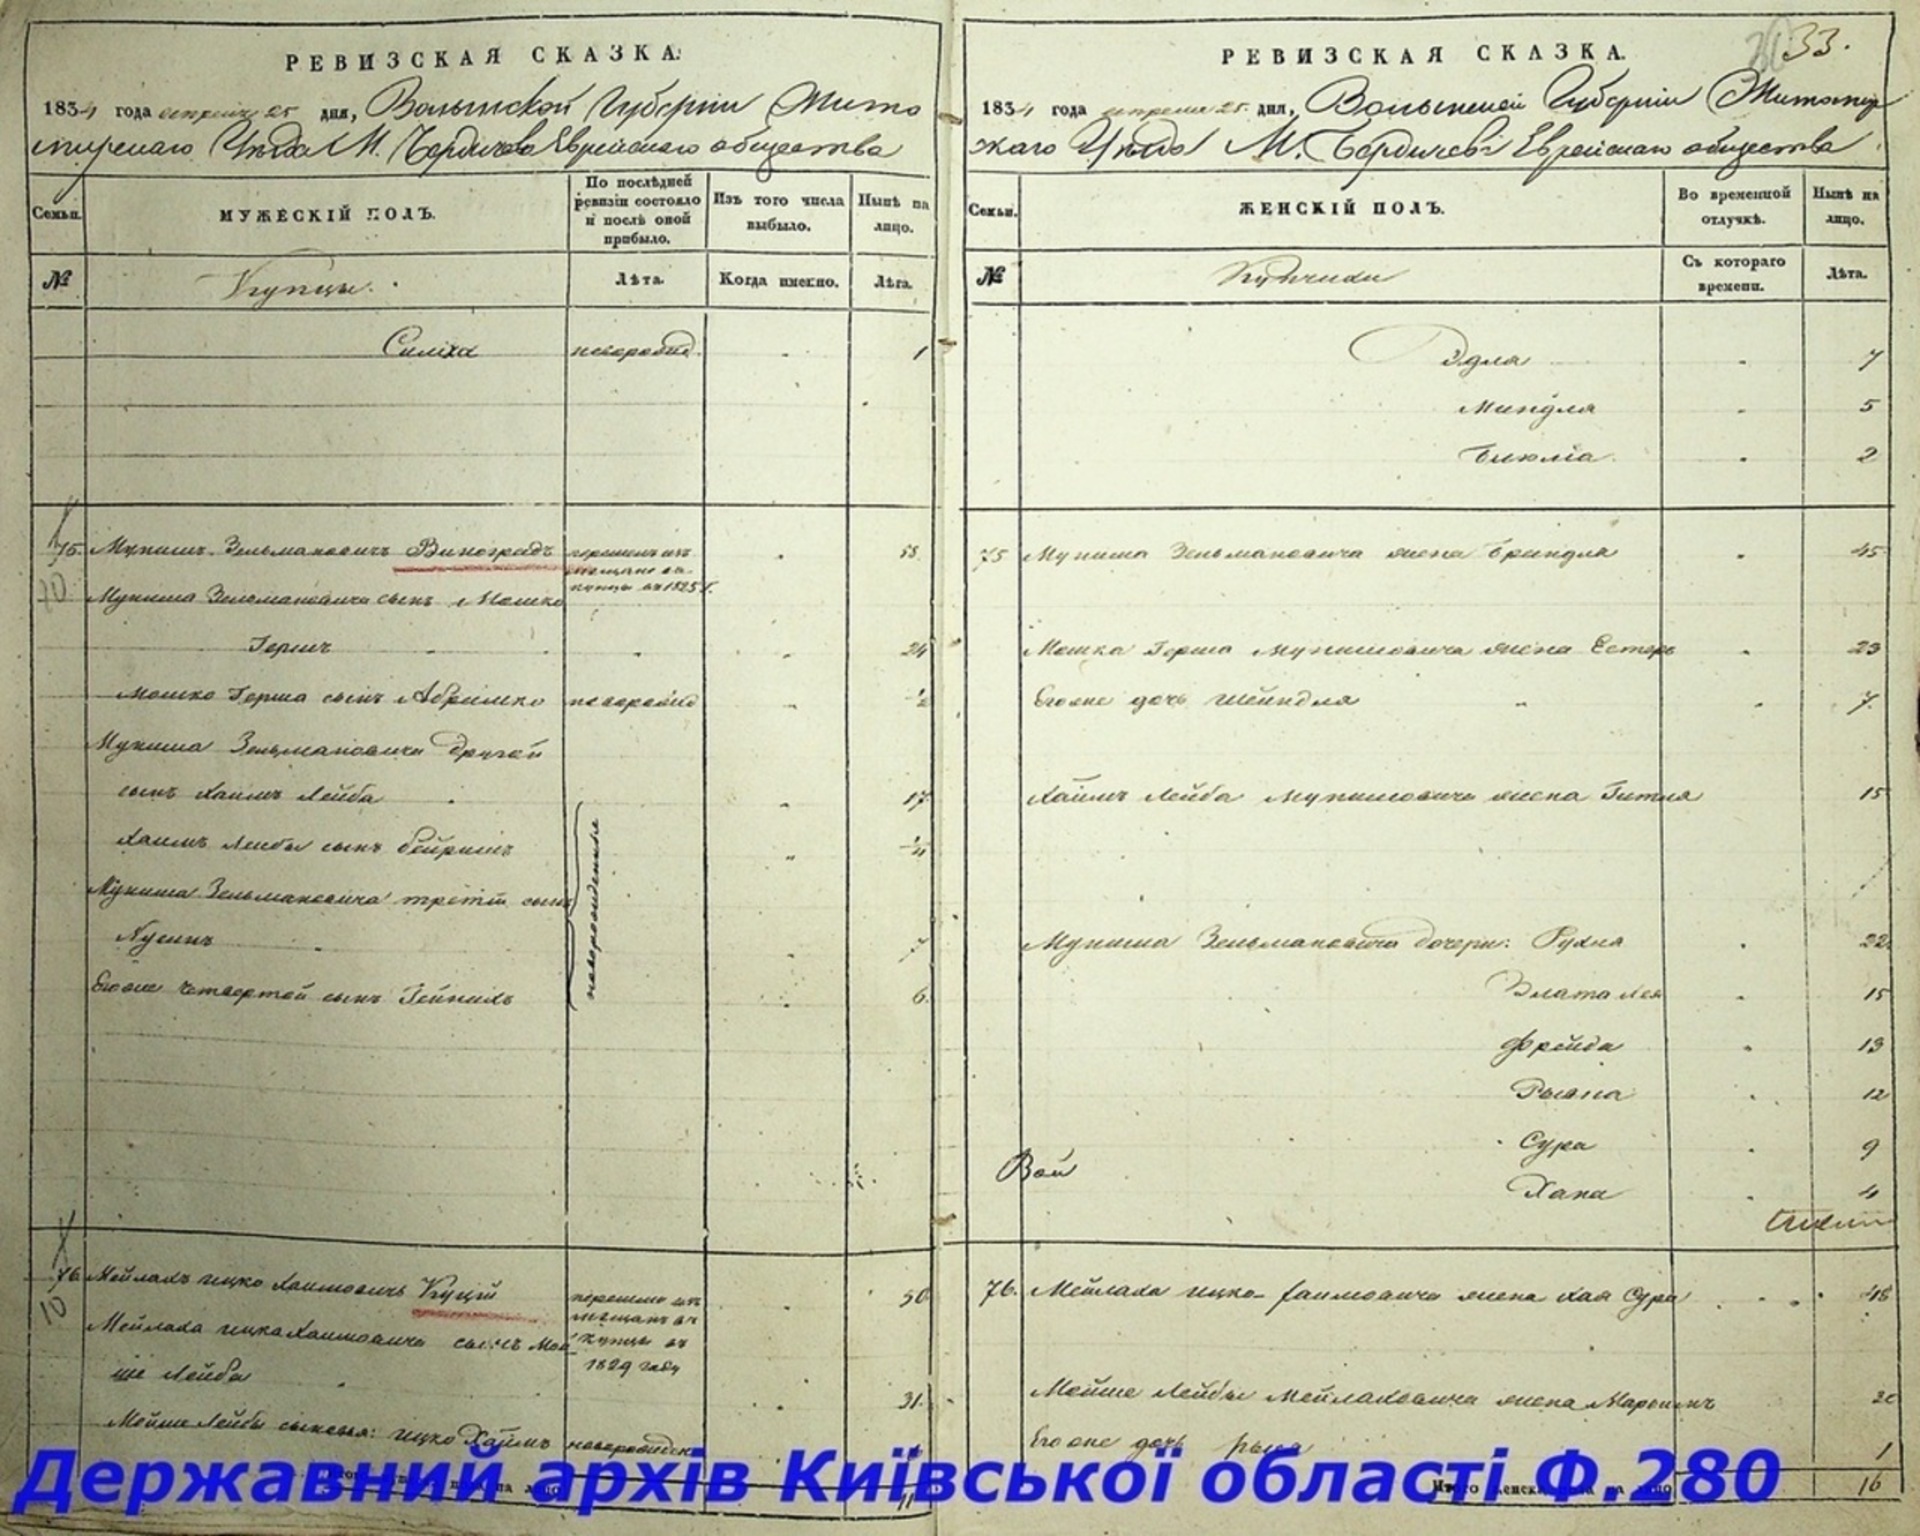 РЕВИЗСКАЯ СКАЗКА.
1834 года апреля 25 дня, Волынской Губернии Жито
мирскаго Уѣзда М. Бердичева Еврейскаго общества
Семьи.
МУЖЕСКІЙ ПОЛЪ.
По послѣдней ревизіи состояло и послѣ оной прибыло.
Изъ того числа выбыло.
Нынѣ на лицо.
№
Купцы.
Лѣта.
Когда именно.
Лѣта.
Симха новорожд. 1
75. Мунишъ Зельмановичъ Виноградъ перешелъ изъ мещанъ въ купцы въ 1825 г.
10
Муниша Зельмановича сынъ Мошко
Гершъ 24
Мошко Герша сынъ Абрамко новорожд ½
Муниша Зельмановича другой
сынъ Хаимъ Лейба 17
Хаимъ Лейбы сынъ ¼
Муниша Зельмановича третій сынъ
Нусинъ 7
Егоже четвертой сынъ 6.
новорожденные
76 Мейлахъ Ицко Хаимовичъ Куцій перешелъ изъ мещанъ въ купцы въ 1829 году 50
10
Мейлаха Ицка Хаимовича сынъ Мой
ше Лейба 31.
Мойше Лейбы сыновья: Ицко Хаимъ новорожден
РЕВИЗСКАЯ СКАЗКА.
33.
1834 года апреля 25 дня, Волынской Губернии Житомир
скаго Уѣзда М. Бердичева Еврейскаго общества
Семьи.
ЖЕНСКІЙ ПОЛЪ.
Во временной отлучкѣ.
Нынѣ на лицо.
№
Купчихи
Съ котораго времени.
Лѣта.
Эдля 7
Миндля 5
2
75 Муниша Зельмановича жена Бриндля 45
Мошка Герша Мунишовича жена Естеръ 23
Егоже дочь Шейндля 7.
Хаимъ Лейба Мунишовича жена Гитля 15
Муниша Зельмановича дочери: Рухля 22
Злата Лея 15
Фрейда 13
12
Сура 9
Вой
Хана 4
76. Мейлаха Ицко Хаимовича жена Хая Сура 48
Мойше Лейбы Мейлаховича жена
Егоже дочь 1
Итого женска пола на лицо 16
Державний архів Київської області Ф.280